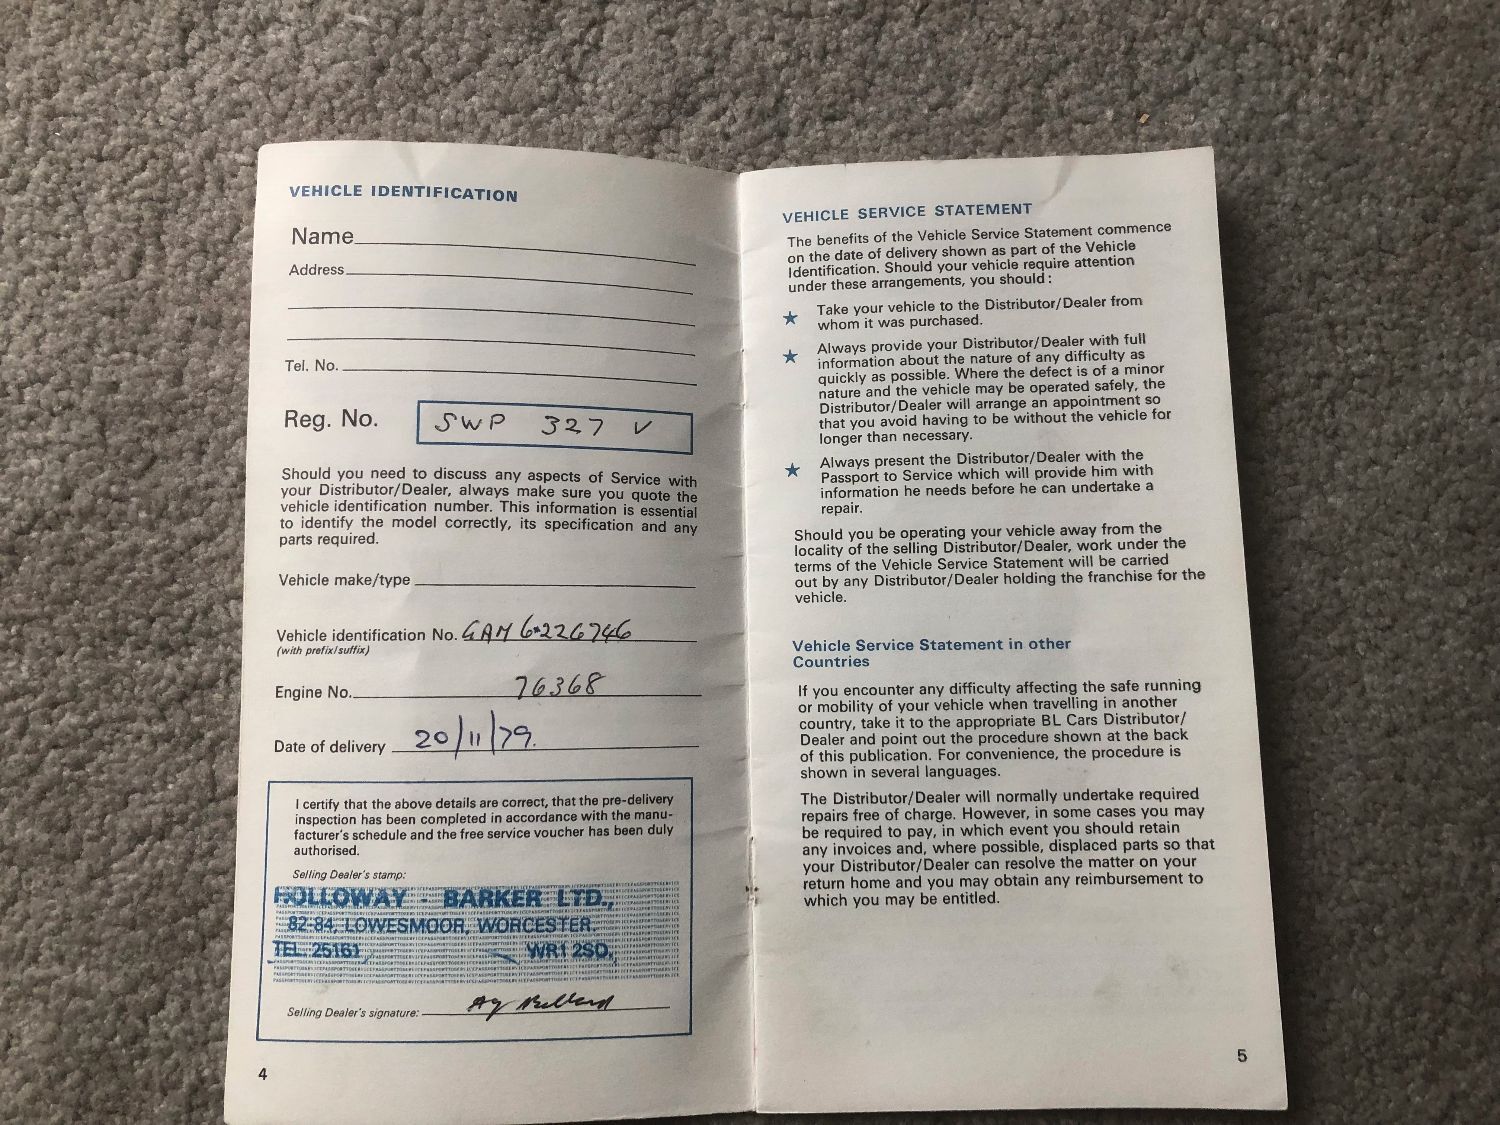 VEHICLE IDENTIFICATION
Name
Address
Tel. No.
Reg. No. SWP 327 V
Should you need to discuss any aspects of Service with
your Distributor/Dealer, always make sure you quote the
vehicle identification number. This information is essential
to identify the model correctly, its specification and any
parts required.
Vehicle make/type
Vehicle identification No. GAM 6*226746
(with prefix/suffix)
Engine No. 76368
Date of delivery 20/11/79.
I certify that the above details are correct, that the pre-delivery
inspection has been completed in accordance with the manu-
facturer's schedule and the free service voucher has been duly
authorised.
Selling Dealer's stamp:
HOLLOWAY - BARKER LTD.,
82-84, LOWESMOOR, WORCESTER.
TEL. 25161 WR1 2SD.
Selling Dealer's signature:
4
VEHICLE SERVICE STATEMENT
The benefits of the Vehicle Service Statement commence
on the date of delivery shown as part of the Vehicle
Identification. Should your vehicle require attention
under these arrangements, you should:
★ Take your vehicle to the Distributor/Dealer from
whom it was purchased.
★ Always provide your Distributor/Dealer with full
information about the nature of any difficulty as
quickly as possible. Where the defect is of a minor
nature and the vehicle may be operated safely, the
Distributor/Dealer will arrange an appointment so
that you avoid having to be without the vehicle for
longer than necessary.
★ Always present the Distributor/Dealer with the
Passport to Service which will provide him with
information he needs before he can undertake a
repair.
Should you be operating your vehicle away from the
locality of the selling Distributor/Dealer, work under the
terms of the Vehicle Service Statement will be carried
out by any Distributor/Dealer holding the franchise for the
vehicle.
Vehicle Service Statement in other
Countries
If you encounter any difficulty affecting the safe running
or mobility of your vehicle when travelling in another
country, take it to the appropriate BL Cars Distributor/
Dealer and point out the procedure shown at the back
of this publication. For convenience, the procedure is
shown in several languages.
The Distributor/Dealer will normally undertake required
repairs free of charge. However, in some cases you may
be required to pay, in which event you should retain
any invoices and, where possible, displaced parts so that
your Distributor/Dealer can resolve the matter on your
return home and you may obtain any reimbursement to
which you may be entitled.
5